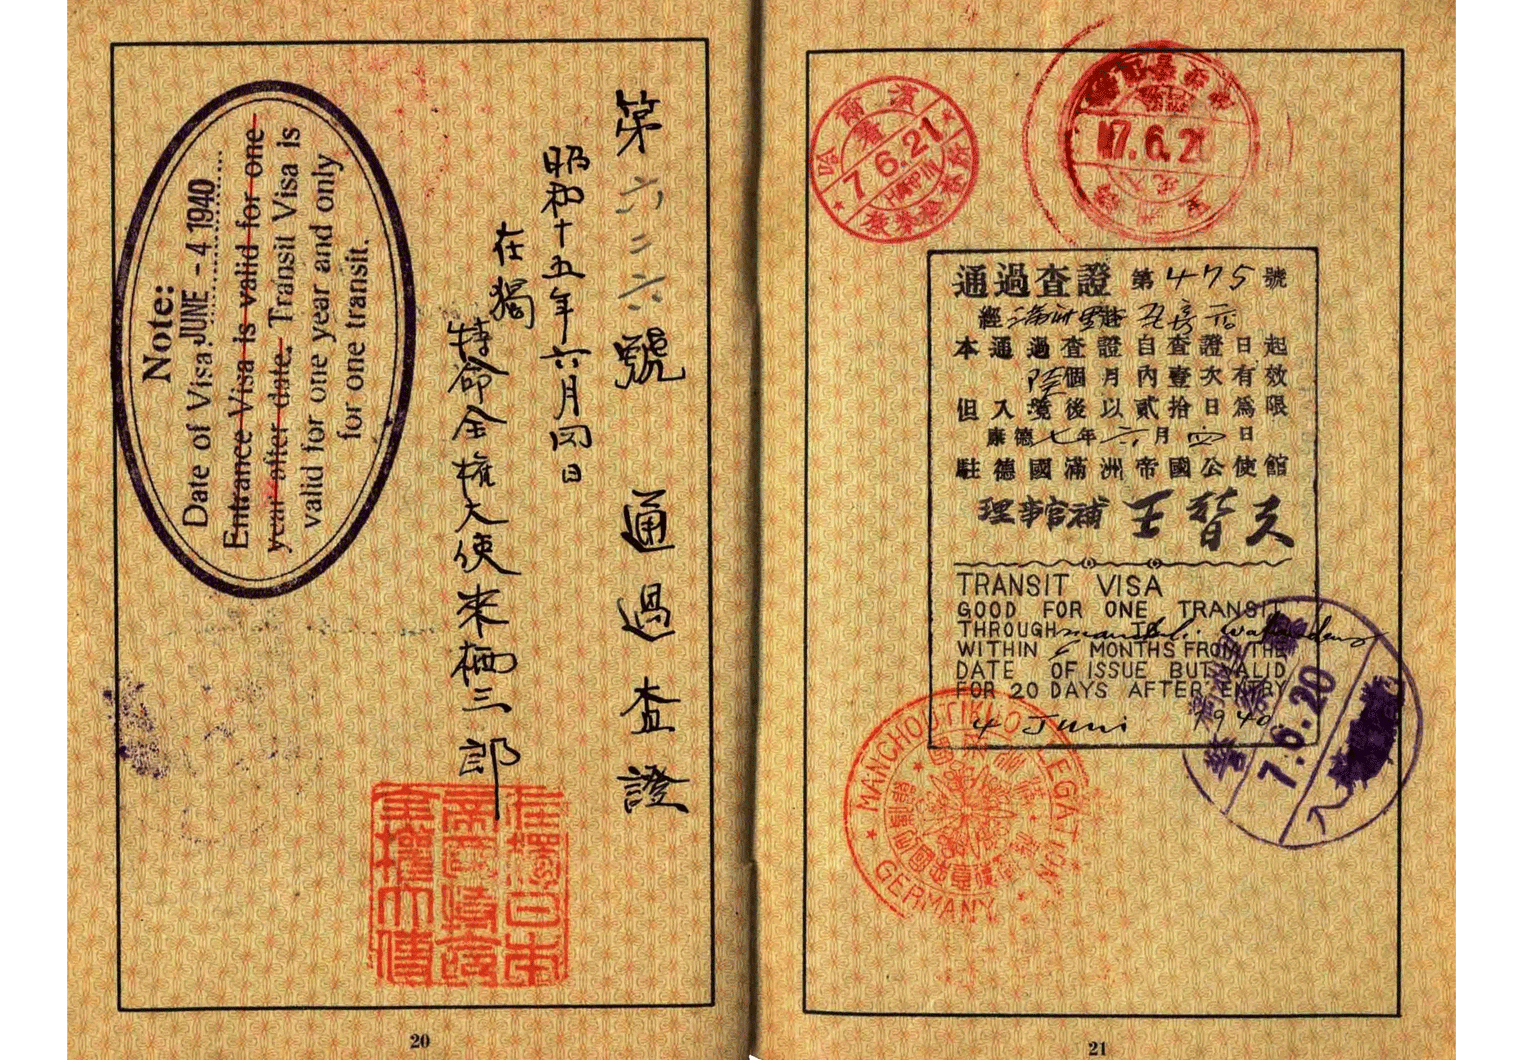 Note:
Date of Visa. JUNE - 4 1940
Entrance Visa is valid for one
year after date. Transit Visa is
valid for one year and only
for one transit.
第六二六號 通過査證
昭和十五年六月四日
在獨
特命全權大使来栖三郎
20
哈爾濱
7.6.21
HARPIN
7.6.21
通過査證 第475號
經滿洲里赴
本通過査證自查證日起
陸個月內壹次有效
但入境後以貳拾日爲限
康德七年六月四日
駐德國滿洲帝國公使館
理事官補 王替夫
TRANSIT VISA
GOOD FOR ONE TRANSIT
THROUGH
WITHIN 6 MONTHS FROM THE
DATE OF ISSUE BUT VALID
FOR 20 DAYS AFTER ENTRY
4 Juni 1940.
MANCHOUTIKUO LEGATION
GERMANY
7.6.20
21